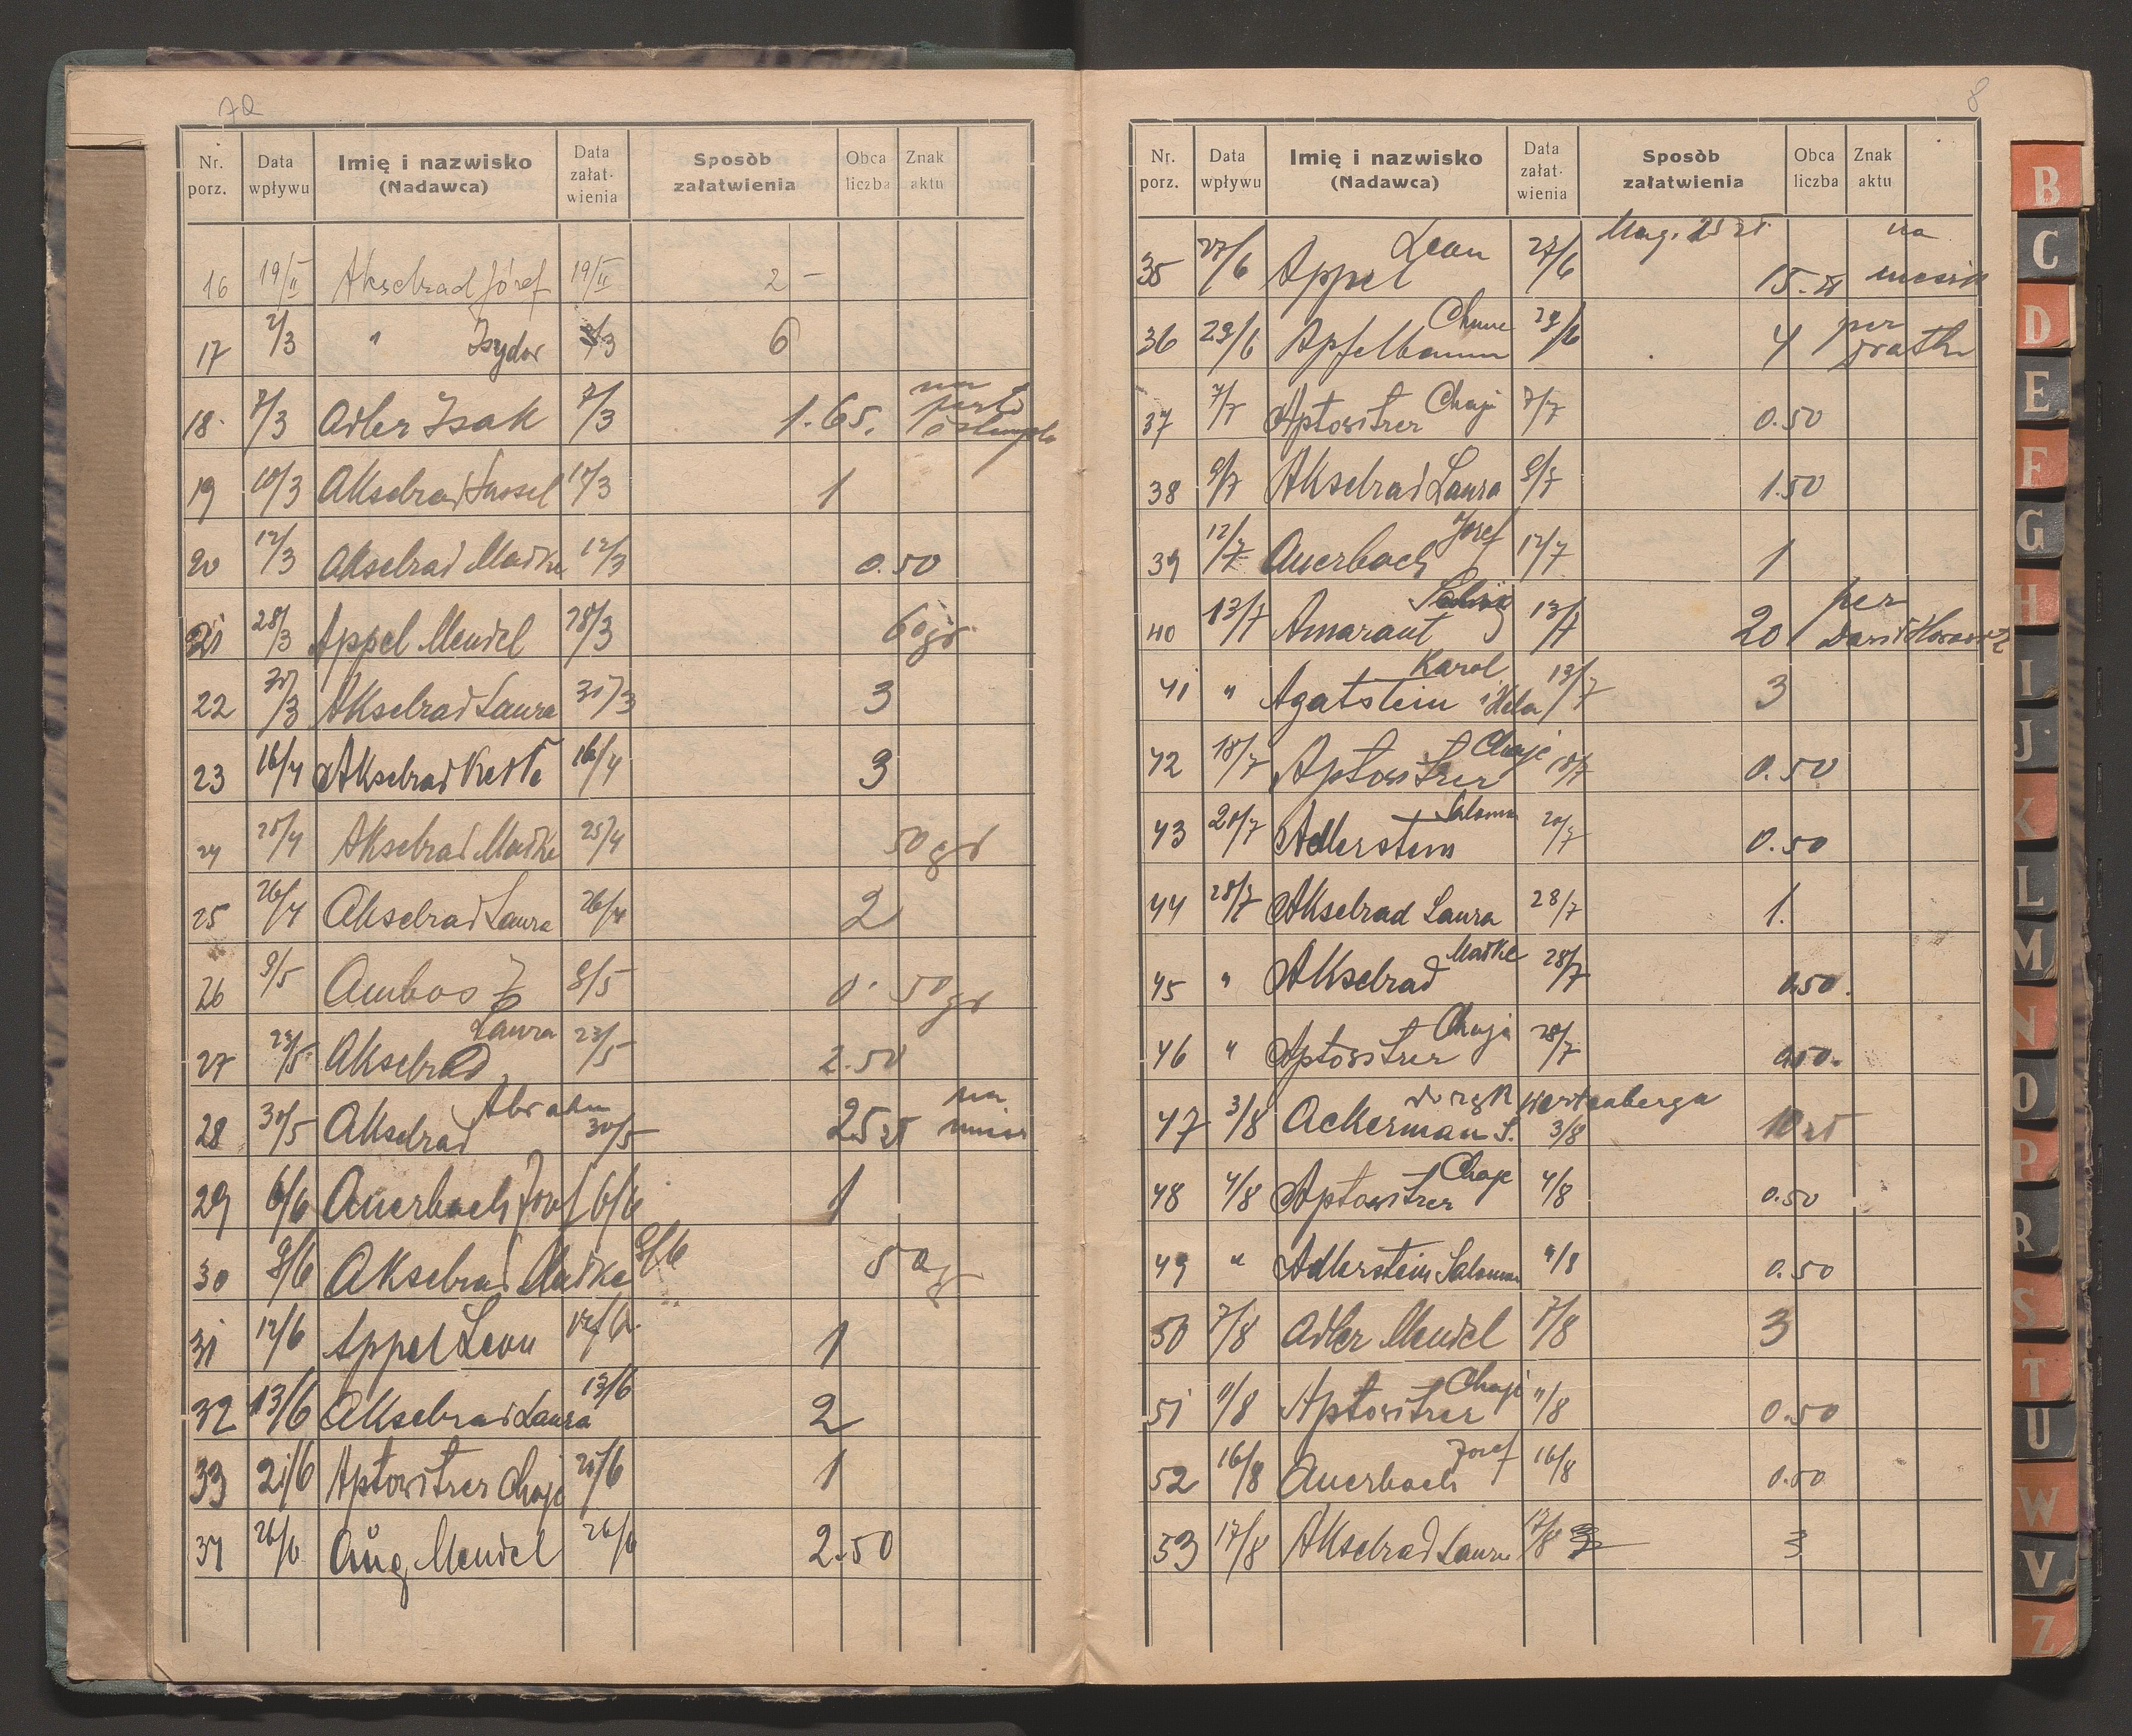 7a
Nr. porz. Data wpływu Imię i nazwisko (Nadawca) Data załat-wienia Sposòb załatwienia Obca liczba Znak aktu
16 19/II Akselrad Józef 19/II 2 –
17 2/3 " Izydor 3/3 6
18. 7/3 Adler Isak 7/3 1.65. na porto
19 10/3 Akselrad Sussel 10/3 1
20 12/3 Akselrad Matke 12/3 0.50
21 28/3 Appel Mendel 28/3 60 gr.
22 31/3 Akselrad Laura 31/3 3
23 16/4 Akselrad 16/4 3
24 25/4 Akselrad Matke 25/4 50 gr
25 26/4 Akselrad Laura 26/4 2
26 9/5 Ambos 9/5 0. 50 gr
27 23/5 Akselrad Laura 23/5 2.50
28 30/5 Akselrad Abraham 30/5 25 zł na
29 6/6 Auerbach Josef 6/6 1
30 9/6 Akselrad Matke 9/6 50 g
31 12/6 Appel Leon 12/6 1
32 13/6 Akselrad Laura 13/6 2
33 21/6 Aptowitzer Chaje 21/6 1
34 26/6 Aug Mendel 26/6 2.50
8
Nr. porz. Data wpływu Imię i nazwisko (Nadawca) Data załat-wienia Sposòb załatwienia Obca liczba Znak aktu
35 27/6 Appel Leon 27/6 Mag. 25 zł. 15.- zł na
36 29/6 Apfelbaum Chune 29/6 4 per
37 7/7 Aptowitzer Chaje 7/7 0.50
38 9/7 Akselrad Laura 9/7 1.50
39 12/7 Auerbach Josef 12/7 1
40 13/7 Amarant 13/7 20 per Dawid Horowitz
41 " Agatstein Karol i Hela 13/7 3
42 18/7 Aptowitzer Chaje 18/7 0.50
43 20/7 Adlerstein Salomon 20/7 0.50
44 28/7 Akselrad Laura 28/7 1.
45 " Akselrad Matke 28/7 0.50.
46 " Aptowitzer Chaja 28/7 0.50.
47 3/8 Ackerman S. do rąk Wertenberga 3/8 10 zł
48 4/8 Aptowitzer Chaje 4/8 0.50
49 " Adlerstein Salomon 4/8 0.50
50 7/8 Adler Mendel 7/8 3
51 11/8 Aptowitzer Chaje 11/8 0.50
52 16/8 Auerbach Josef 16/8 0.50
53 17/8 Akselrad Laura 17/8 3
B
C
D
E
F
G
H
I
J
K
L
M
N
O
P
R
S
T
U
W
V
Z